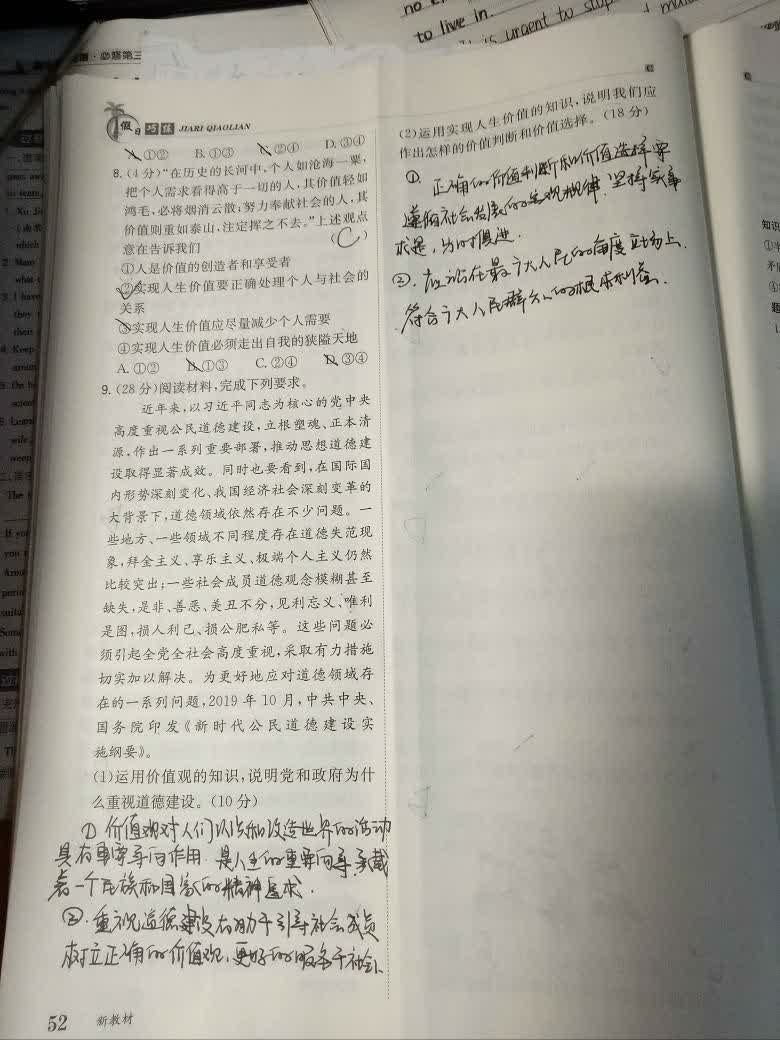 no
to live in.
is urgent to stop
必修第三
假日巧练 JIARI QIAOLIAN
A.①② B.①③ C.②④ D.③④
8.(4分)“在历史的长河中,个人如沧海一粟,
把个人需求看得高于一切的人,其价值轻如
鸿毛,必将烟消云散;努力奉献社会的人,其
价值则重如泰山,注定挥之不去。”上述观点
意在告诉我们 (C)
①人是价值的创造者和享受者
②实现人生价值要正确处理个人与社会的
关系
③实现人生价值应尽量减少个人需要
④实现人生价值必须走出自我的狭隘天地
A.①② B.①③ C.②④ D.③④
9.(28分)阅读材料,完成下列要求。
近年来,以习近平同志为核心的党中央
高度重视公民道德建设,立根塑魂、正本清
源,作出一系列重要部署,推动思想道德建
设取得显著成效。同时也要看到,在国际国
内形势深刻变化、我国经济社会深刻变革的
大背景下,道德领域依然存在不少问题。一
些地方、一些领域不同程度存在道德失范现
象,拜金主义、享乐主义、极端个人主义仍然
比较突出;一些社会成员道德观念模糊甚至
缺失,是非、善恶、美丑不分,见利忘义、唯利
是图,损人利己、损公肥私等。这些问题必
须引起全党全社会高度重视,采取有力措施
切实加以解决。为更好地应对道德领域存
在的一系列问题,2019年10月,中共中央、
国务院印发《新时代公民道德建设实
施纲要》。
(1)运用价值观的知识,说明党和政府为什
么重视道德建设。(10分)
① 价值观对人们认识和改造世界的活动
具有重要导向作用.是人生的重要向导,承载
着一个民族和国家的精神追求.
②.重视道德建设有助于引导社会成员
树立正确的价值观,更好的服务于社会.
52 新教材
(2)运用实现人生价值的知识,说明我们应
作出怎样的价值判断和价值选择。(18分)
①. 正确的价值判断和价值选择要
遵循社会发展的客观规律.坚持实事
求是,与时俱进.
②.应站在最广大人民的角度立场上.
符合广大人民群众的根本利益.